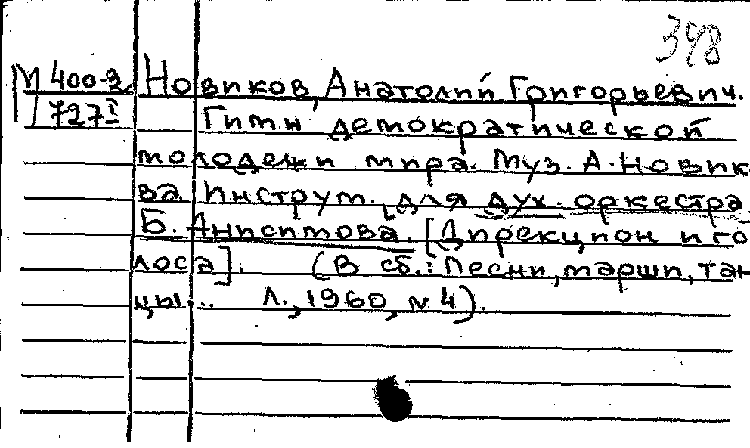 398
М 400-3 Новиков, Анатолий Григорьевич.
727 I Гимн демократической
молодежи мира. Муз. А. Новико
ва Инструм. для дух. оркестра
Б. Анисимова. [Дирекцион и го
лоса]. (В сб.: Песни, марши, тан
цы... Л., 1960, № 4).